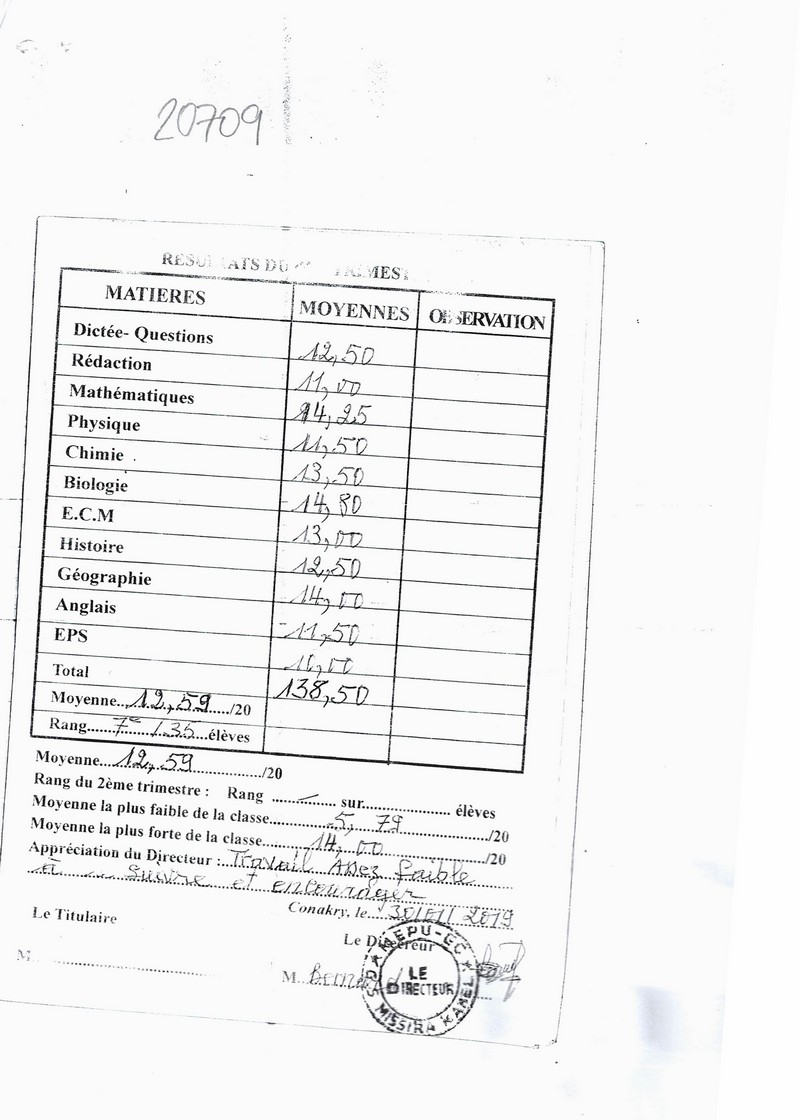 20709
RESULTATS DU TRIMEST
MATIERES MOYENNES OBSERVATION
Dictée- Questions 12,50
Rédaction 11,00
Mathématiques 14,25
Physique 11,50
Chimie 13,50
Biologie 14,80
E.C.M 13,00
Histoire 12,50
Géographie 14,00
Anglais 11,50
EPS
Total 138,50
Moyenne..12,59...../20
Rang.......7e / 35...élèves
Moyenne...12,59............/20
Rang du 2ème trimestre : Rang ............. sur.................. élèves
Moyenne la plus faible de la classe............5, 79............../20
Moyenne la plus forte de la classe.........14, 00............../20
Appréciation du Directeur : Travail Assez faible
à suivre et encourager
Conakry, le... 2019
Le Titulaire
Le Directeur
M ..............................
M. Bernard
MEPU-EC
LE
DIRECTEUR
MISSIRA KAMEL